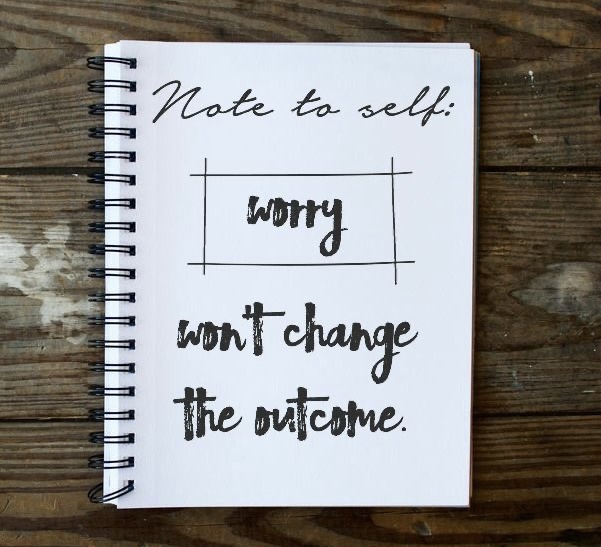 Note to self:
worry
won't change
the outcome.